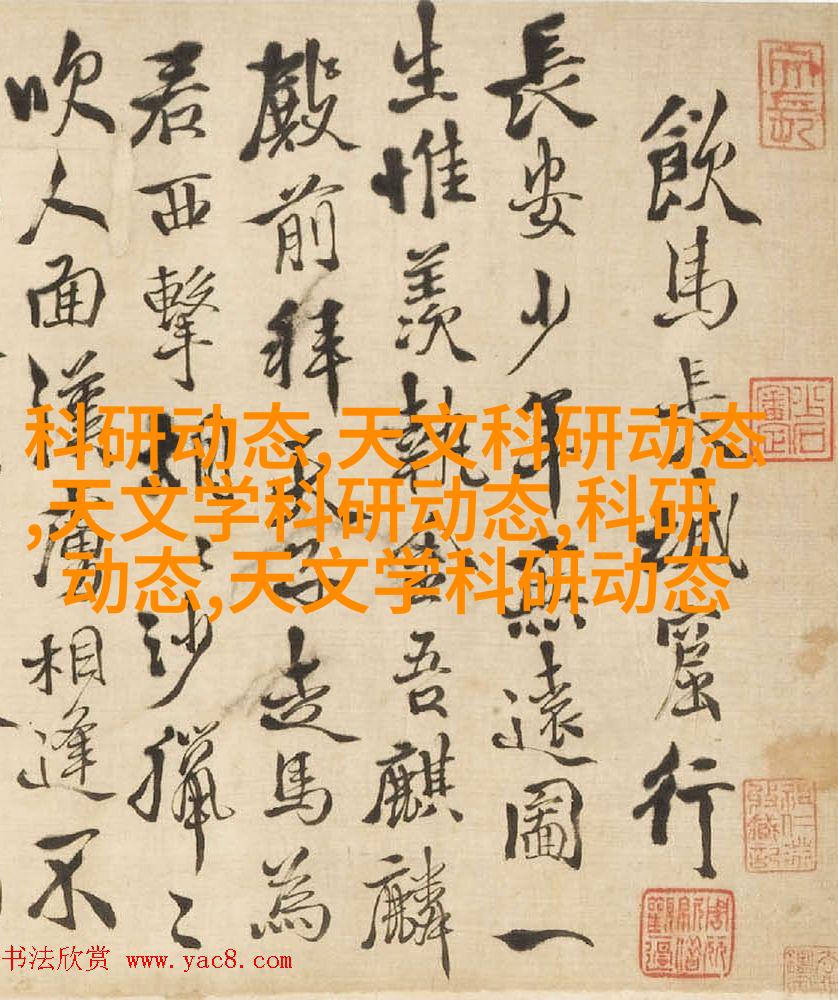 飲馬長城窟行
長安少年無遠圖一
生惟羨執金吾麒麟
殿前拜天子走馬為
君西擊胡〻沙獵〻
吹人面漢虜相逢不
科研动态,天文科研动态
,天文学科研动态,科研
动态,天文学科研动态
书法欣赏 www.yac8.com